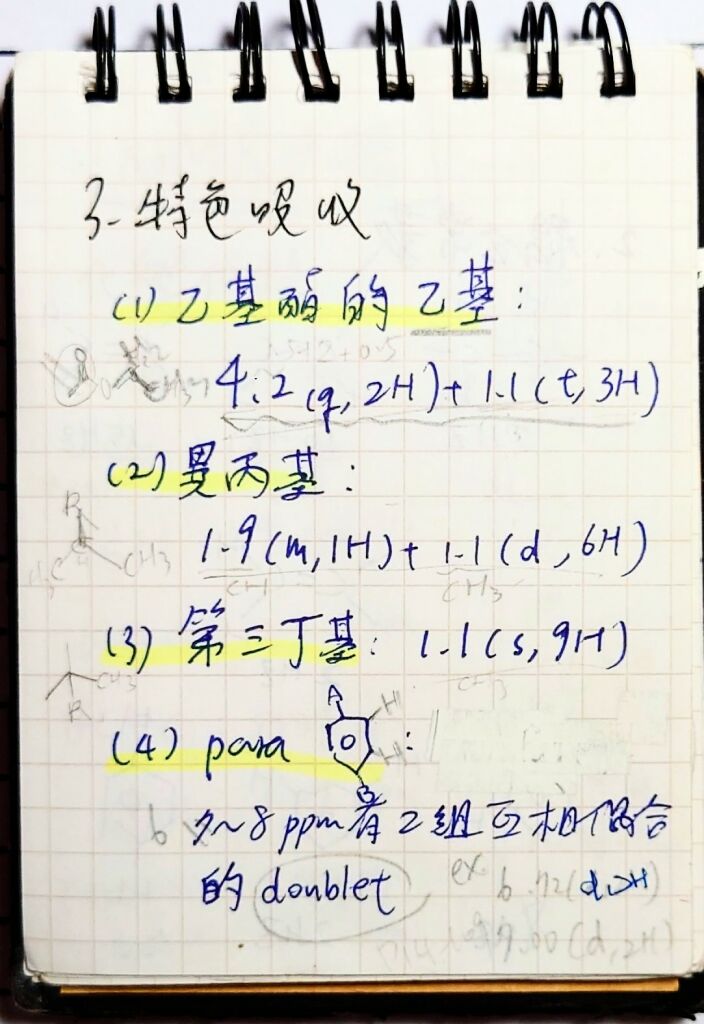 3. 特色吸收
(1) 乙基酯的乙基:
1.5+2+0.5
4.2 (q, 2H) + 1.1 (t, 3H)
(2) 異丙基:
R
1.9 (m, 1H) + 1.1 (d, 6H)
H3C CH3 CH CH3
(3) 第三丁基: 1.1 (s, 9H)
CH3 CH3
R
(4) para A B H H :
7~8 ppm有2組互相偶合
的 doublet
ex. 6.72 (d, 2H)
7.00 (d, 2H)